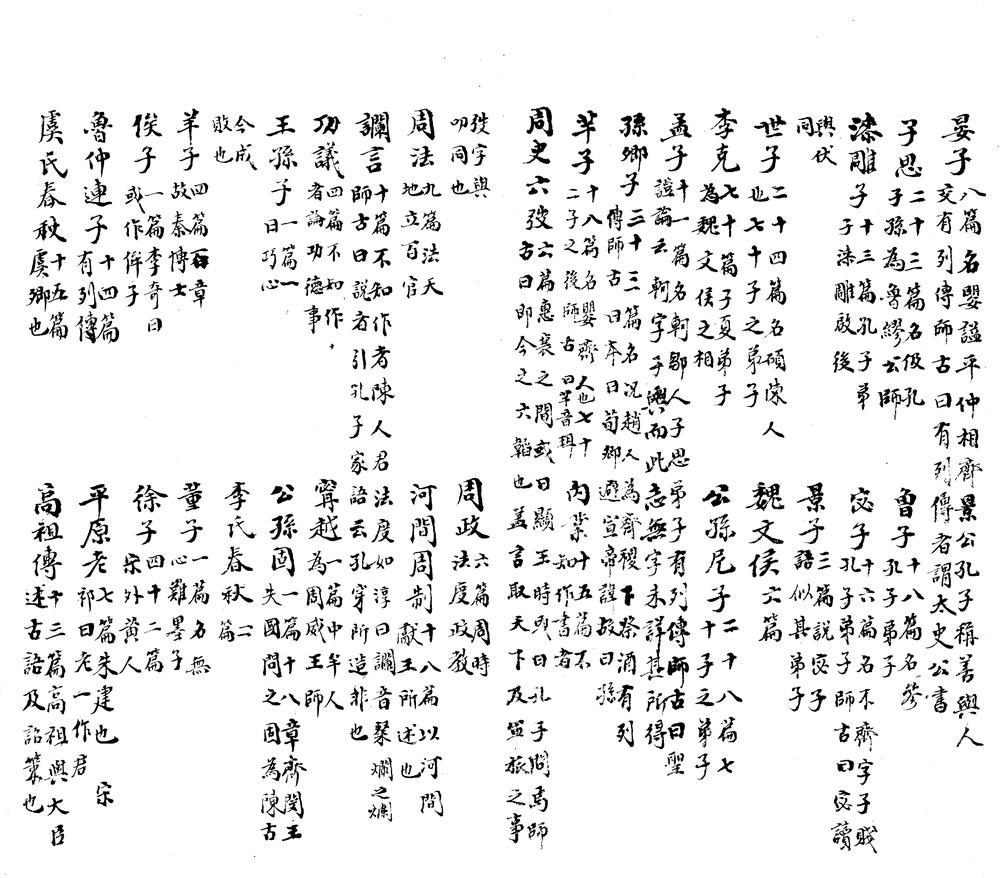 晏子八篇名嬰謚平仲相齊景公孔子稱善與人交有列傳師古曰有列傳者謂太史公書
子思二十三篇名伋孔子孫為魯繆公師 曾子十八篇名參孔子弟子
漆雕子十三篇孔子弟子漆雕啟後 宓子十六篇名不齊字子賤孔子弟子師古曰宓讀
與伏同 景子三篇說宓子語似其弟子
世子二十四篇名碩陳人也七十子之弟子 魏文侯六篇
李克七十篇子夏弟子為魏文侯之相 公孫尼子二十八篇七十子之弟子
孟子十一篇名軻鄒人子思弟子有列傳師古曰聖證論云軻字子輿而此志無字未詳其所得
孫卿子三十三篇名況趙人為齊稷下祭酒有列傳師古曰本曰荀卿避宣帝諱故曰孫
芉子十八篇名嬰齊人也七十二子之後師古曰芉音弭 內業十五篇不知作書者
周史六弢六篇惠襄之間或曰顯王時或曰孔子問焉師古曰即今之六韜也蓋言取天下及軍旅之事
弢字與叨同也 周政六篇周時法度政教
周法九篇法天地立百官 河間周制十八篇以河間獻王所述也
讕言十篇不知作者陳人君法度如淳曰讕音粲爛之爛師古曰說者引孔子家語云孔穿所造非也
功議四篇不知作者論功德事 甯越一篇中牟人為周威王師
王孫子一篇一曰巧心 公孫固一篇十八章齊閔王失國問之固為陳古
今成敗也 李氏春秋二篇
羊子四篇百章故秦博士 董子一篇名無心難墨子
俟子一篇李奇曰或作侔子 徐子四十二篇宋外黃人
魯仲連子十四篇有列傳 平原老七篇朱建也宋祁曰老一作君
虞氏春秋十五篇虞卿也 高祖傳十三篇高祖與大臣述古語及詔策也